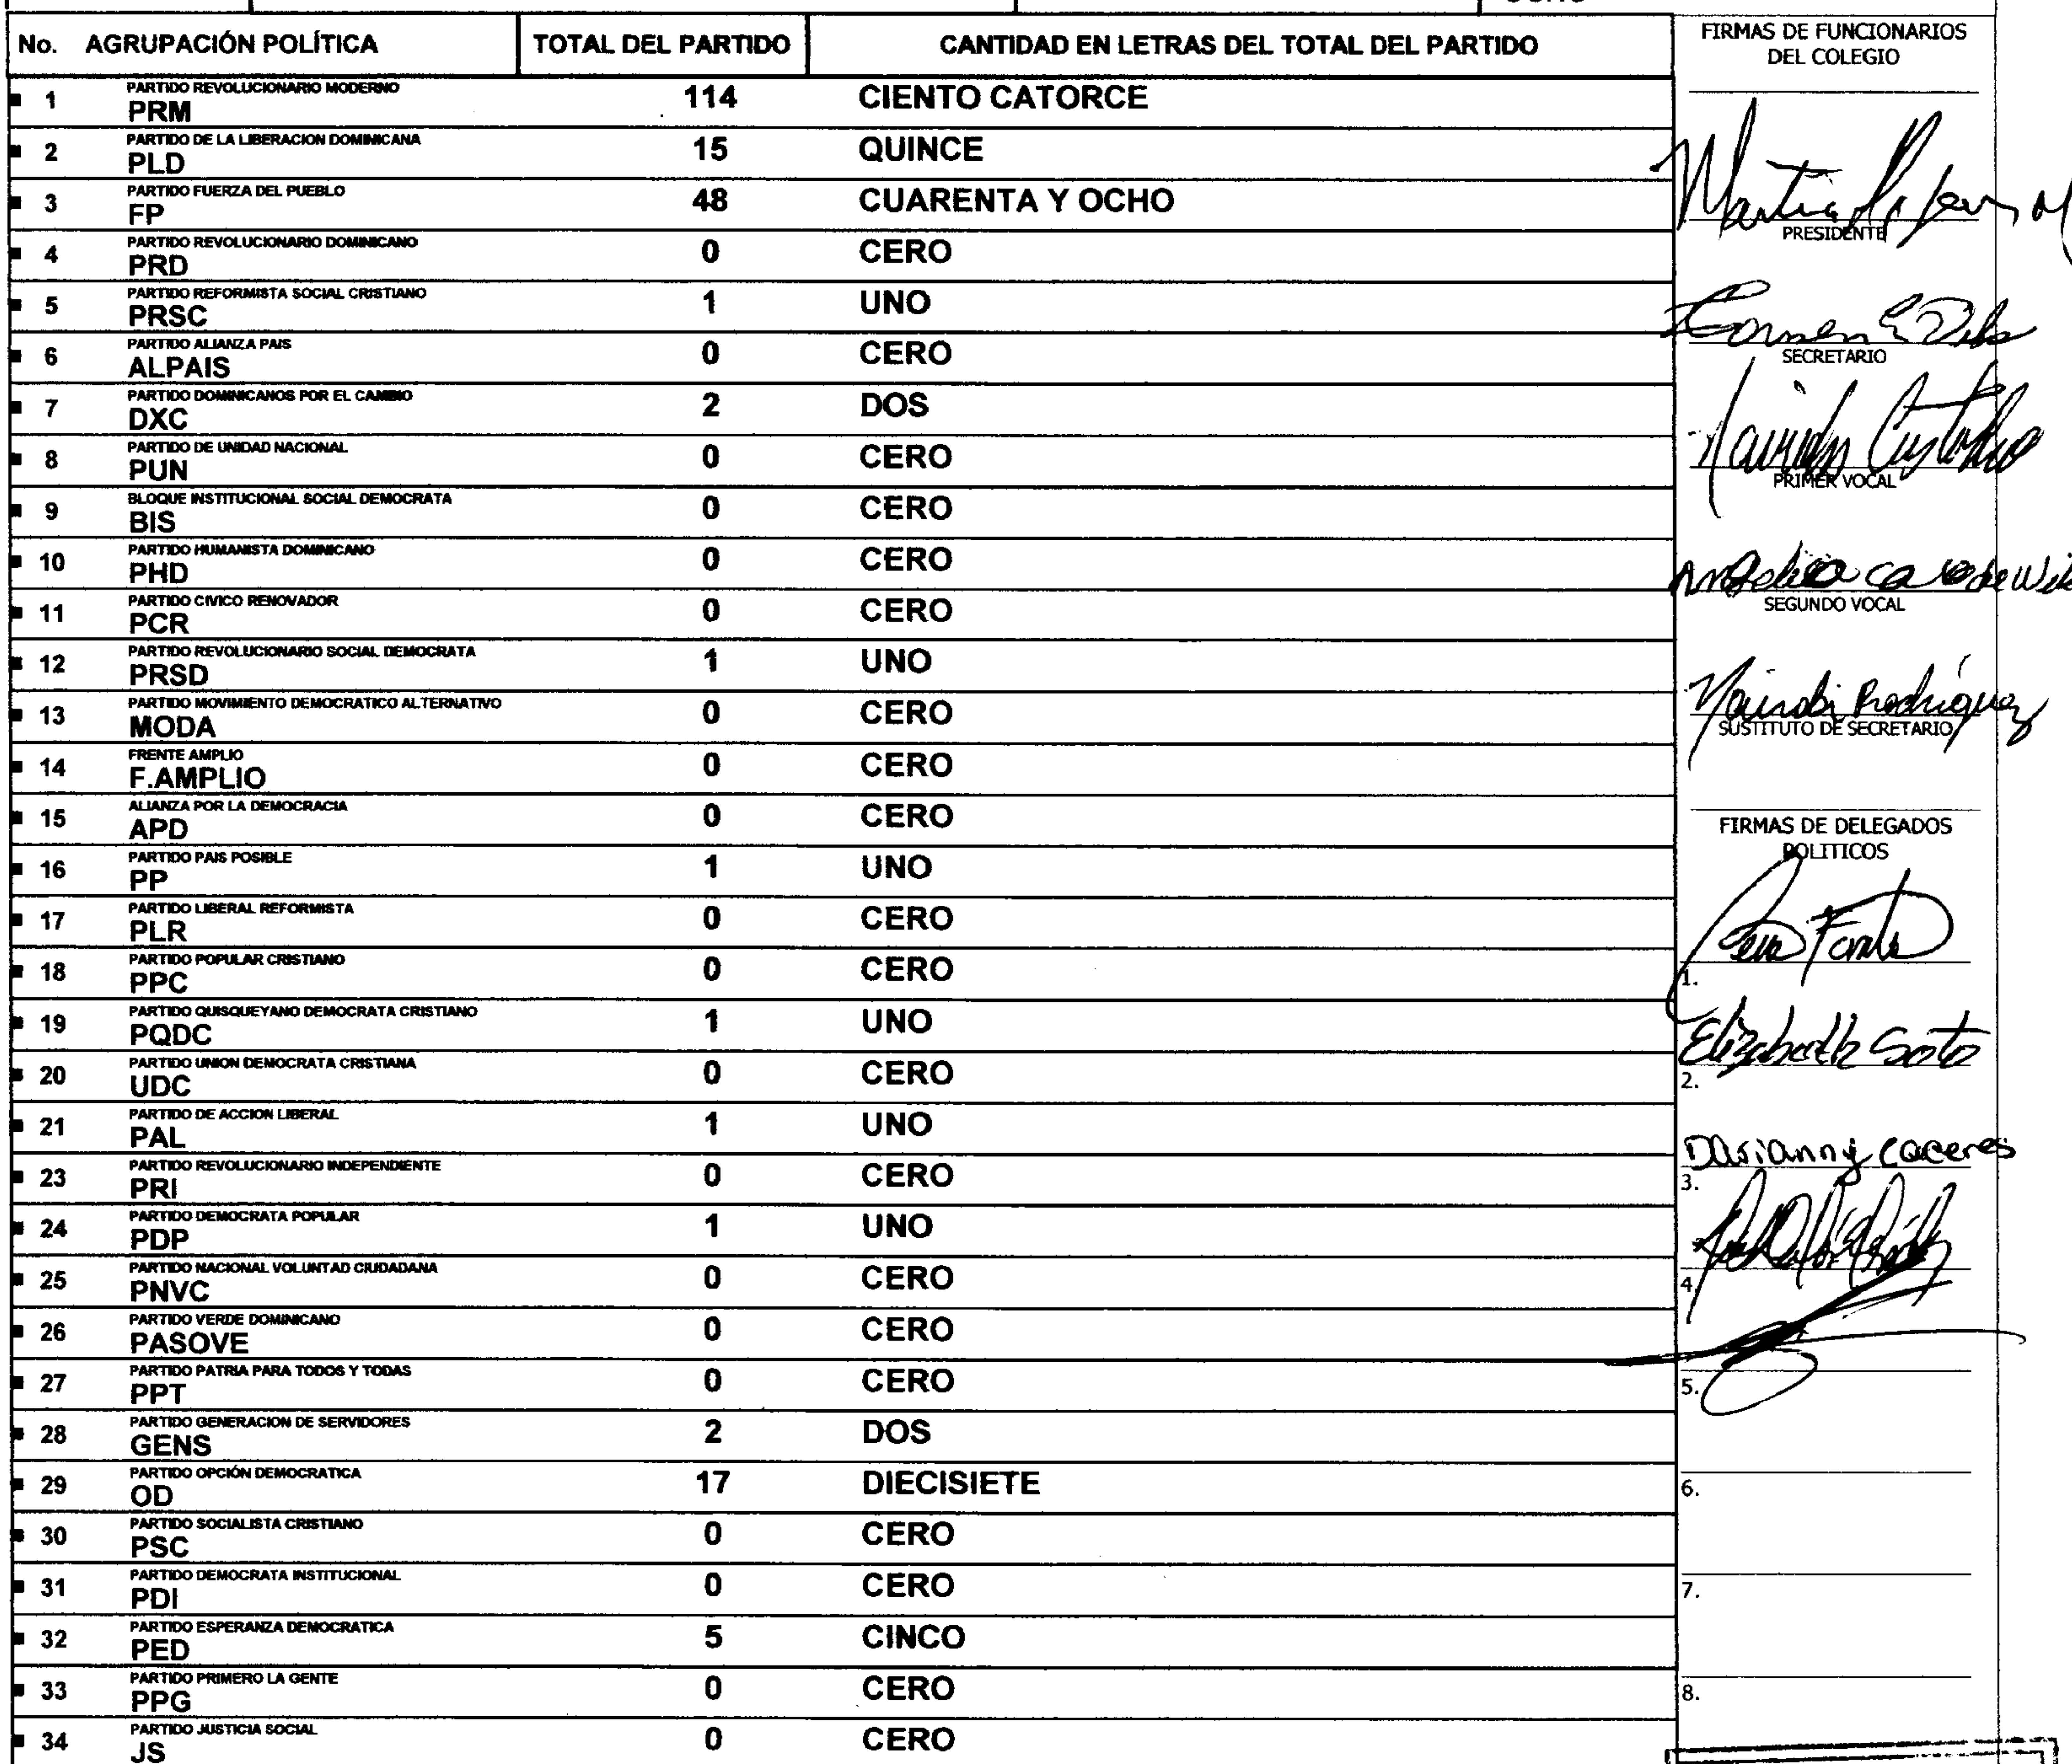 No. AGRUPACIÓN POLÍTICA TOTAL DEL PARTIDO CANTIDAD EN LETRAS DEL TOTAL DEL PARTIDO
1 PARTIDO REVOLUCIONARIO MODERNO
PRM 114 CIENTO CATORCE
2 PARTIDO DE LA LIBERACION DOMINICANA
PLD 15 QUINCE
3 PARTIDO FUERZA DEL PUEBLO
FP 48 CUARENTA Y OCHO
4 PARTIDO REVOLUCIONARIO DOMINICANO
PRD 0 CERO
5 PARTIDO REFORMISTA SOCIAL CRISTIANO
PRSC 1 UNO
6 PARTIDO ALIANZA PAIS
ALPAIS 0 CERO
7 PARTIDO DOMINICANOS POR EL CAMBIO
DXC 2 DOS
8 PARTIDO DE UNIDAD NACIONAL
PUN 0 CERO
9 BLOQUE INSTITUCIONAL SOCIAL DEMOCRATA
BIS 0 CERO
10 PARTIDO HUMANISTA DOMINICANO
PHD 0 CERO
11 PARTIDO CIVICO RENOVADOR
PCR 0 CERO
12 PARTIDO REVOLUCIONARIO SOCIAL DEMOCRATA
PRSD 1 UNO
13 PARTIDO MOVIMIENTO DEMOCRATICO ALTERNATIVO
MODA 0 CERO
14 FRENTE AMPLIO
F.AMPLIO 0 CERO
15 ALIANZA POR LA DEMOCRACIA
APD 0 CERO
16 PARTIDO PAIS POSIBLE
PP 1 UNO
17 PARTIDO LIBERAL REFORMISTA
PLR 0 CERO
18 PARTIDO POPULAR CRISTIANO
PPC 0 CERO
19 PARTIDO QUISQUEYANO DEMOCRATA CRISTIANO
PQDC 1 UNO
20 PARTIDO UNION DEMOCRATA CRISTIANA
UDC 0 CERO
21 PARTIDO DE ACCION LIBERAL
PAL 1 UNO
23 PARTIDO REVOLUCIONARIO INDEPENDIENTE
PRI 0 CERO
24 PARTIDO DEMOCRATA POPULAR
PDP 1 UNO
25 PARTIDO NACIONAL VOLUNTAD CIUDADANA
PNVC 0 CERO
26 PARTIDO VERDE DOMINICANO
PASOVE 0 CERO
27 PARTIDO PATRIA PARA TODOS Y TODAS
PPT 0 CERO
28 PARTIDO GENERACION DE SERVIDORES
GENS 2 DOS
29 PARTIDO OPCIÓN DEMOCRATICA
OD 17 DIECISIETE
30 PARTIDO SOCIALISTA CRISTIANO
PSC 0 CERO
31 PARTIDO DEMOCRATA INSTITUCIONAL
PDI 0 CERO
32 PARTIDO ESPERANZA DEMOCRATICA
PED 5 CINCO
33 PARTIDO PRIMERO LA GENTE
PPG 0 CERO
34 PARTIDO JUSTICIA SOCIAL
JS 0 CERO
FIRMAS DE FUNCIONARIOS
DEL COLEGIO
PRESIDENTE
SECRETARIO
PRIMER VOCAL
SEGUNDO VOCAL
Nairobi Rodriguez
SUSTITUTO DE SECRETARIO
FIRMAS DE DELEGADOS
POLITICOS
1.
Elizabeth Soto
2.
Darianny Caceres
3.
4.
5.
6.
7.
8.